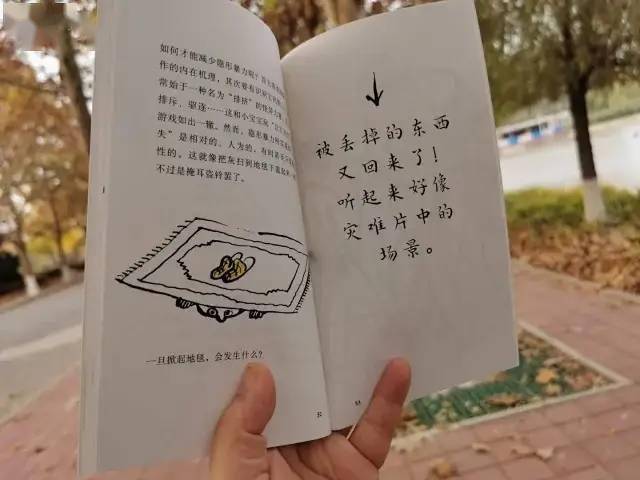 如何才能减少隐形暴力呢？首先
作的内在机理，其次要有识
常始于一种名为“排挤”的
排斥、驱逐……这和小宝宝玩
游戏如出一辙。然而，隐形暴力
失”是相对的、人为的，有时甚
性的。这就像把灰扫到地毯下面
不过是掩耳盗铃罢了。
一旦掀起地毯，会发生什么？
被丢掉的东西
又回来了！
听起来好像
灾难片中的
场景。